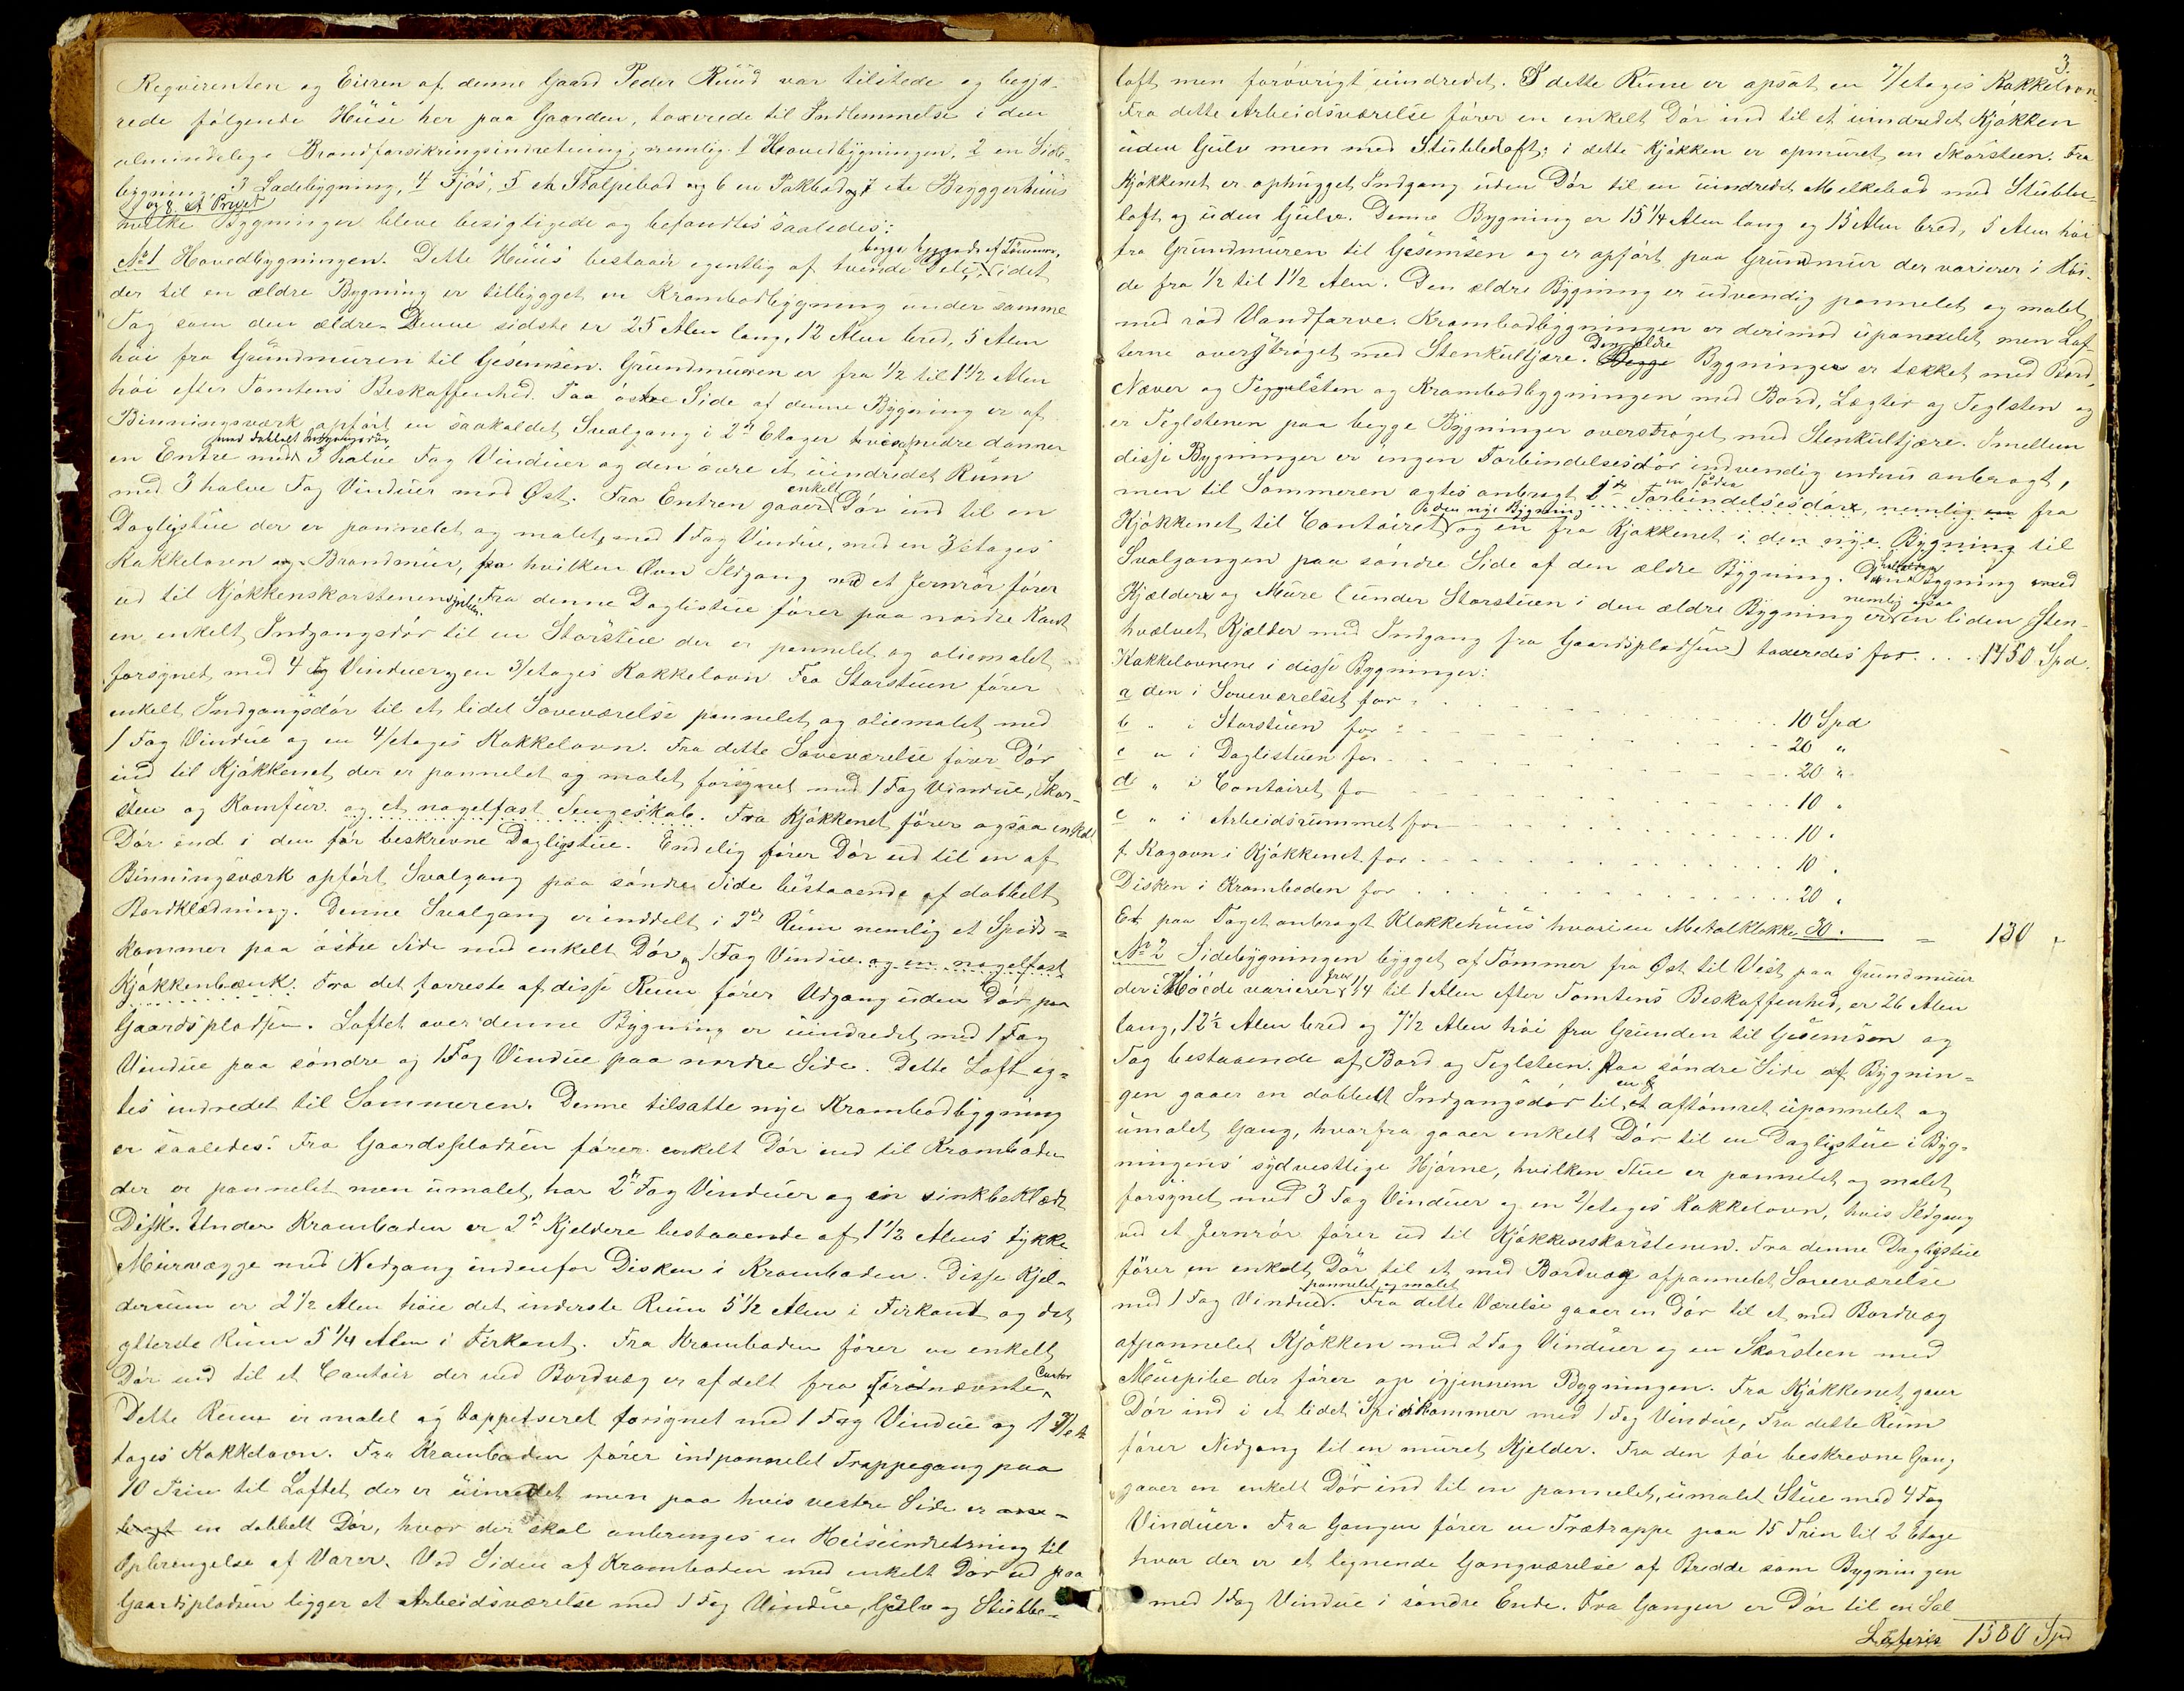 Reqvirenten og Eieren af denne Gaard Peder Rüüd var tilstede og begjæ-
rede følgende Hüüse her paa Gaarden, taxerede til Indlemmelse i den
almindelige Brandforsikringsindretning; nemlig 1 Hovedbygningen, 2 en Side-
bygning, 3 Ladebygning, 4 Fjøs, 5 et Stolpebod og 6 en Pakbod og 7 ete Bryggerhüüs
og 8 et Privet
hvilke Bygninger bleve besigtigede og befandtes saaledes:
begge byggede af Tømmer,
No 1 Hovedbygningen. Dette Hüüs bestaaer egentlig af tvende Dele, idet
der til en ældre Bygning er tilbygget en Krambodbygning under samme
Tag som den ældre. Denne sidste er 25 Alen lang, 12 Alen bred, 5 Alen
høi fra Gründmüren til Gesemsen. Gründmüren er fra 1/2 til 1 1/2 Alen
høi efter Tomtens Beskaffenhed. Paa østre Side af denne Bygning er af
Binningsværk opført en saakaldet Svalgang i 2de Etager hvis nedre danner
med dobbelt Indgangsdør
en Entre med 3 halve Fag Vindüer og den øvre et üindredet Rüm
enkelt
med 3 halve Fag Vindüer mod Øst. Fra Entren gaaer Dør ind til en
Dagligstüe der er pannelet og malet, med 1 Fag Vindüe, med en 3/etages
Kakkelovn og Brandmür, fra hvilken Ovn Ildgang ved et Jernrør fører
üd til Kjøkkenskorstenens piben. Fra denne Daglistüe fører paa nordre Kant
en enkelt Indgangsdør til en Storstüe der er pannelet og oliemalet
forsynet med 4 Fag Vindüer og en 3/etages Kakkelovn Fra Storstüen fører
enkelt Indgangsdør til et lidet Soveværelse pannelet og oliemalet med
1 Fag Vindüe og en 4/etages Kakkelovn. Fra dette Soveværelse fører Dør
ind til Kjøkkenet, der er pannelet og malet, forsynet med 1 Fag Vindüe, Skor-
sten og Komfür og et nagelfast Sengeskab. Fra Kjøkkenet fører ogsaa enkel
Dør ind i den før beskrevne Dagligstüe. Endelig fører Dør üd til en af
Binningsværk opført Svalgang paa søndre Side bestaaende af dobbelt
Bordklædning. Denne Svalgang er inddelt i 2de Rüm nemlig et Spids-
kammer paa østre Side med enkelt Dør og 1 Fag Vindüe og en nagelfast
Kjøkkenbænk. Fra det forreste af disse Rum fører Udgang üden Dør paa
Gaardspladsen. Loftet over denne Bygning er üindredet med 1 Fag
Vindüe paa søndre og 1 Fag Vindüe paa nordre Side. Dette Loft ag-
tes indredet til Sommeren. Denne tilsatte nye Krambodbygning
er saaledes: Fra Gaardspladsen fører enkelt Dør ind til Kramboden
der er pannelet men ümalet, har 2de Fag Vindüer og en sinkbeklædt
Disk. Under Kramboden er 2de Kjeldere bestaaende af 1 1/2 Alens tykke
Mürvægge med Nedgang indenfor Disken i Kramboden. Disse Kjel-
derrüm er 2 1/2 Alen høie det inderste Rüm 5 1/2 Alen i Firkant og det
ytterste Rüm 5 1/4 Alen i Firkant. Fra Kramboden fører en enkelt
Dør ind til et Contoir der ved Bordvæg er afdelt fra førstnævnte
Dette Rum er malet og tappetseret forsynet med 1 Fag Vindüe og 1 2/e
tages Kakkelovn. Fra Kramboden fører indpannelet Trappegang paa
10 Trin til Loftet der er üindredet men paa hvis vestre Side er an-
bragt en dobbelt Dør, hvor der skal anbringes en Heiseindretning til
Opbringelse af Varer. Ved Siden af Kramboden med enkelt Dør üd paa
Gaardspladsen ligger et Arbeidsværelse med 1 Fag Vindüe, Gülv og Stübbe-
3.
loft men forøvrigt üindredet. I dette Rum er opsat en 2/etages Kakkelovn.
Fra dette Arbeidsværelse fører en enkelt Dør ind til et üindredet Kjøkken
üden Gülv men med Stübbeloft; i dette Kjøkken er opmüret en Skorsteen. Fra
Kjøkkenet er ophugget Indgang üden Dør til en üindredet Melkebod med Stübbe-
loft og üden Gülv. Denne Bygning er 15 1/4 Alen lang og 13 Alen bred, 5 Alen høi
fra Gründmüren til Gesemsen og er opført paa Gründmür der varierer i Høi-
de fra 1/2 til 1 1/2 Alen. Den ældre Bygning er üdvendig pannelet og malet
med rød Vandfarve. Krambodbygningen er derimod üpannelet men Laf-
Den ældre
terne overstrøget med Stenkultjære. Begge Bygningen er tækket med Bord,
Næver og Tegelsten og Krambodbygningen med Bord, Lægter og Teglsten og
er Teglstenen paa begge Bygninger overstrøget med Stenkultjære. Imellem
disse Bygninger er ingen Forbindelsesdør indvendig endnü anbragt,
men til Sommeren agtes anbragt 2de Forbindelsesdøre, nemlig en fra
i den nye Bygning
Kjøkkenet til Contoiret og en fra Kjøkkenet i den nye Bygning til
Svalgangen paa søndre Side af den ældre Bygning. Denne Bygning med
nemlig ogsaa
Kjældere og Müre (ünder Storstüen i den ældre Bygning er en liden Sten-
hvælvet Kjælder med Indgang fra Gaardspladsen) taxeredes for . . . . 1450 Spd.
Kakkelovnene i disse Bygninger:
a den i Soveværelset for . . . . 10 Spd
b " i Storstüen for . . . . 20 "
c " i Daglistüen for . . . . 20 "
d " i Contoiret for . . . . 10 "
e " i Arbeidsrummet for . . . . 10 "
f. Kogovn i Kjøkkenet for . . . . 10 "
Disken i Kramboden for . . . . 20 "
Et paa Taget anbragt Klokkehüüs hvori en Metalklokke 30. = 130 "
No 2 Sidebygningen bygget af Tømmer fra Øst til Vest paa Gründmüür
fra
der i Høide varierer 1/4 til 1 Alen efter Tomtens Beskaffenhed, er 26 Alen
lang, 12 1/2 Alen bred og 7 1/2 Alen høi fra Gründen til Gesemsen og
Tag bestaaende af Bord og Teglsteen. Paa søndre Side af Bygnin-
gen gaaer en dobbelt Indgangsdør til et aftømret üpannelet og
ümalet Gang, hvorfra gaaer enkelt Dør til en Dagligstüe i Byg-
ningens sydvestlige Hjørne, hvilken Stüe er pannelet og malet
forsynet med 3 Fag Vindüer og en 2/etages Kakkelovn, hvis Ildgang
ved et Jernrør fører üd til Kjøkkenskorstenen. Fra denne Dagligstüe
fører en enkelt Dør til et med Bordvæg afpannelet Soveværelse
pannelet og malet
med 1 Fag Vindüe. Fra dette Værelse gaaer en Dør til et med Bordvæg
afpannelet Kjøkken med 2 Fag Vindüer og en Skorsteen med
Mürpibe der fører op igjennem Bygningen. Fra Kjøkkenet gaaer
Dør ind i et lidet Spiskammer med 1 Fag Vindüe, Fra dette Rüm
fører Nedgang til en müret Kjelder. Fra den før beskrevne Gang
gaaer en enkelt Dør ind til en pannelet, ümalet Stüe med 4 Fag
Vindüer. Fra Gangen fører en Trætrappe paa 15 Trin til 2 Etage
hvor der er et lignende Gangværelse af Bredde som Bygningen
med 1 Fag Vindüe i søndre Ende. Fra Gangen er Dør til en Sal
Lateris 1580 Spd